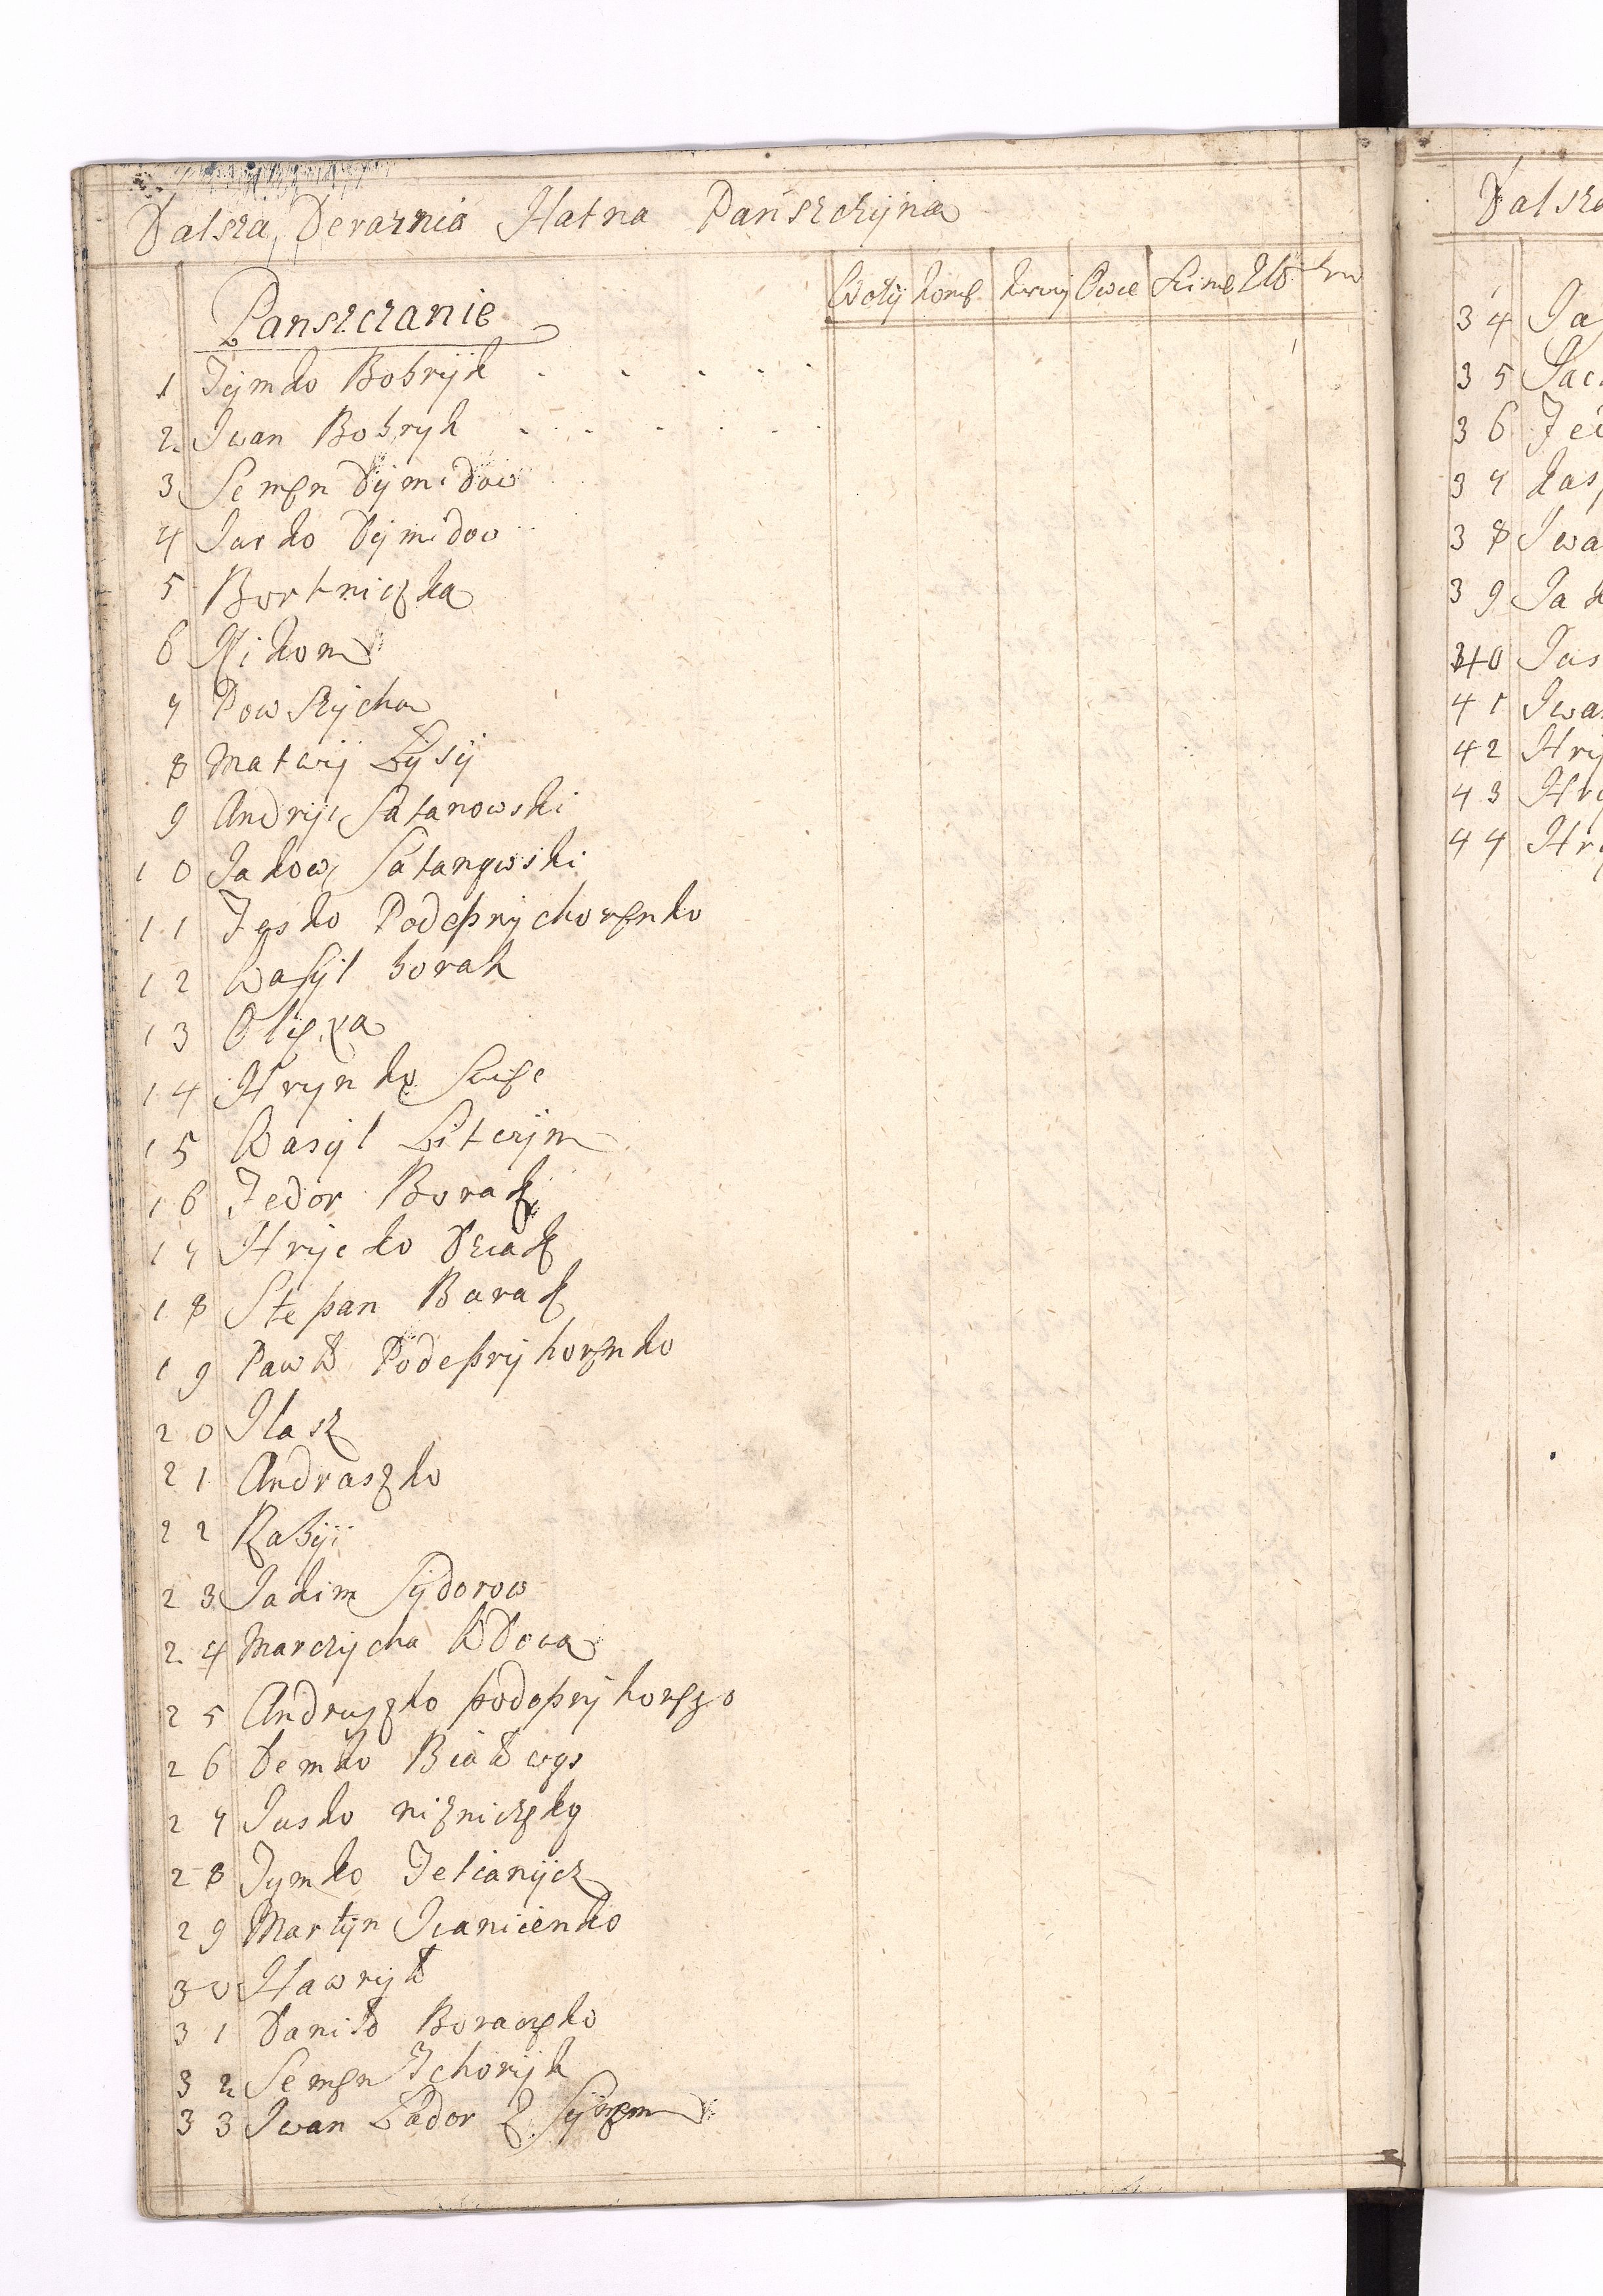 Dalsza Derażnia Hatna Pańszczyna
Panszczanie
Woły konie krowy Owce Swinie
1 Tymko Bobryk
2 Iwan Bobryk
3 Semen Dymidow
4 Jacko Dymidow
5 Bortniczka
6 Nikon
7 Powszycha
8 Matwij Łysy
9 Andryi Satanowski
10 Jakow Satanowski
11 Jesko Podepryhorenko
12 Wasyl borak
13 Olexa
14 Hrynko
15 Wasyl Litwyn
16 Fedor Borak
17 Hrycko Dziak
18 Stepan Barak
19 Pawło Podepryhorenko
20 Ilasz
21 Andraszko
22 Rabyi
23 Jakim Sydorow
24 Marczycha Wdowa
25 Andruszko podepryhorzo
26 Demko Białowąs
27 Jusko niżniczek
28 Tymko Telianycz
29 Martyn Iwanienko
30 Hawryło
31 Daniło Boraczko
32 Semen Tchoryk
33 Iwan Lador z Synem
Dalsza
34 Ja
35
36 Fe
37 kas
38 Iwa
39 Jak
40 Jas
41 Iwa
42 Hry
43 Hry
44 Hry